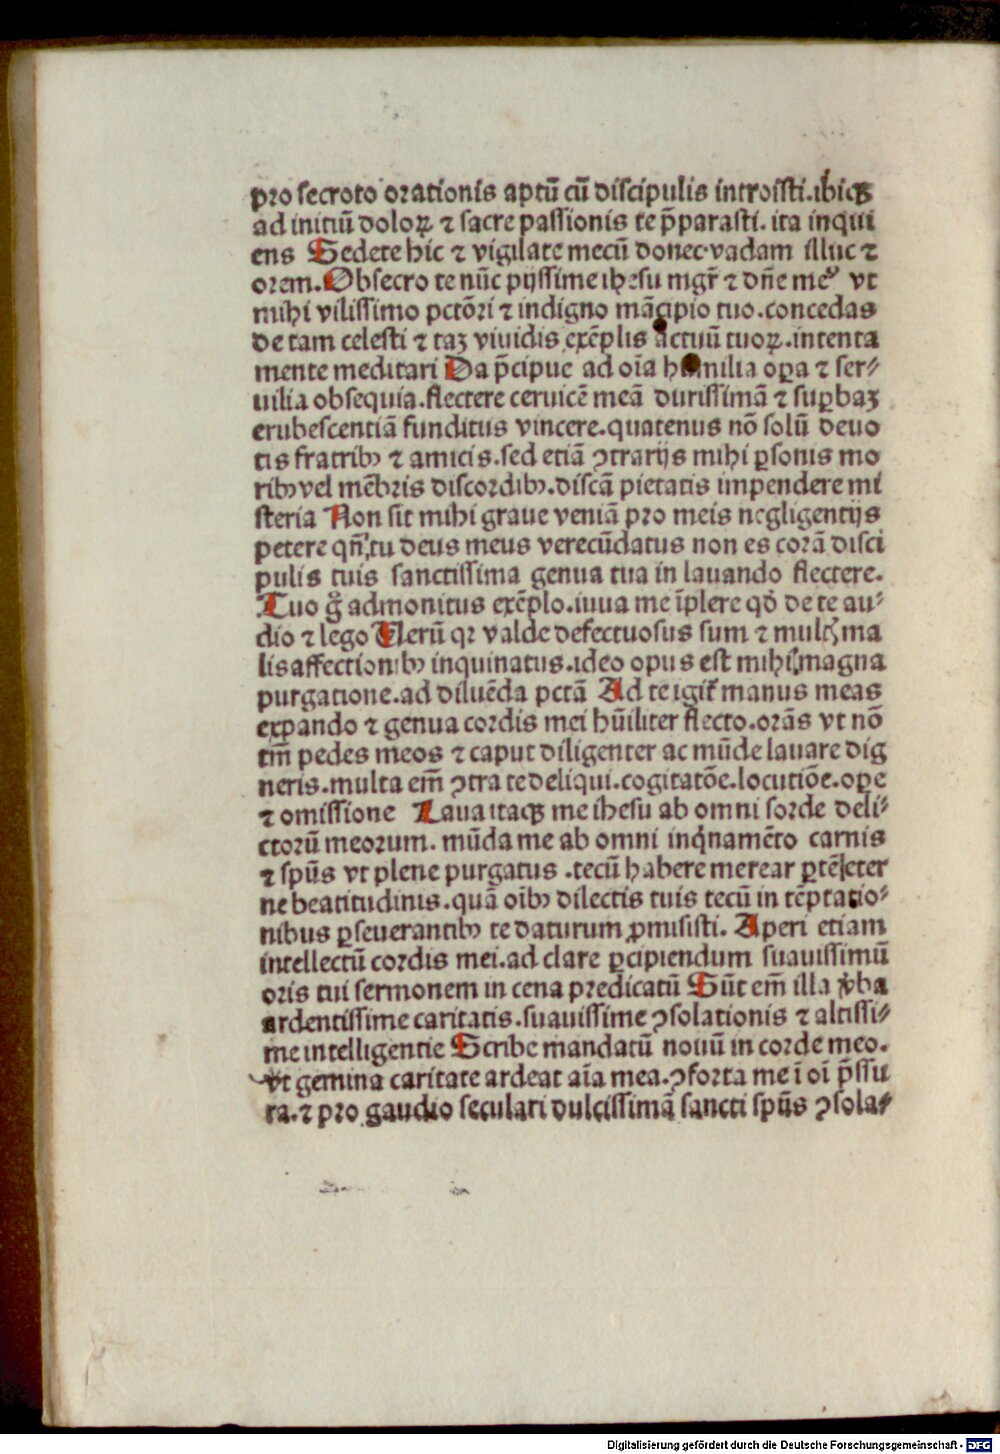 pro secroto orationis aptū cū discipulis introisti.ibiqꝫ
ad initiū doloꝝ ⁊ sacre passionis te p̄parasti. ita inqui
ens Sedete hic ⁊ vigilate mecū donec vadam illuc ⁊
orem.Obsecro te nūc pijssime ihesu mgr̄ ⁊ dn̄e meꝰ vt
mihi vilissimo pctōri ⁊ indigno mācipio tuo.concedas
de tam celesti ⁊ taꝫ viuidis exēplis actuū tuoꝝ.intenta
mente meditari Da p̄cipue ad oīa humilia oꝑa ⁊ ser⸗
uilia obsequia.flectere ceruicē meā durissimā ⁊ suꝑbaꝫ
erubescentiā funditus vincere.quatenus nō solū deuo
tis fratribꝰ ⁊ amicis.sed etiā ꝯtrarijs mihi ꝑsonis mo
ribꝰ vel mēbris discordibꝰ.discā pietatis impendere mi
steria Non sit mihi graue veniā pro meis negligentijs
petere qn̄ tu deus meus verecūdatus non es corā disci
pulis tuis sanctissima genua tua in lauando flectere.
Tuo g̊ admonitus exēplo.iuua me īplere qd̓ de te au⸗
dio ⁊ lego Uerū qꝛ valde defectuosus sum ⁊ multꝭ ma
lis affectionibꝰ inquinatus.ideo opus est mihi magna
purgatione.ad diluēda pctā Ad te igit̄ manus meas
expando ⁊ genua cordis mei hūiliter flecto.orās vt nō
tm̄ pedes meos ⁊ caput diligenter ac mūde lauare dig
neris.multa em̄ ꝯtra te deliqui.cogitatōe.locutiōe.oꝑe
⁊ omissione Laua itaqꝫ me ihesu ab omni sorde deli⸗
ctorū meorum. mūda me ab omni inqͥnamēto carnis
⁊ spūs vt plene purgatus .tecū habere merear ꝑtē eter
ne beatitudinis.quā oībꝰ dilectis tuis tecū in tēptatio⸗
nibus ꝑseuerantibꝰ te daturum ꝓmisisti. Aperi etiam
intellectū cordis mei.ad clare ꝑcipiendum suauissimū
oris tui sermonem in cena predicatū Sūt em̄ illa v̓ba
ardentissime caritatis.suauissime ꝯsolationis ⁊ altissi⸗
me intelligentie Scribe mandatū nouū in corde meo.
vt gemina caritate ardeat aīa mea.ꝯforta me ī oī p̄ssu
ra.⁊ pro gaudio seculari dulcissimā sancti spūs ꝯsola⸗
Digitalisierung gefördert durch die Deutsche Forschungsgemeinschaft - DFG